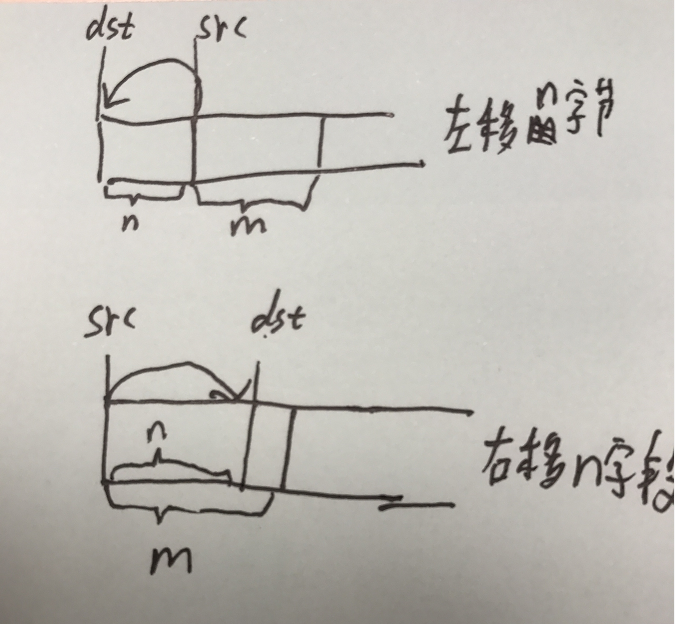 dst src
左移n字节
n m
src dst
n
右移n字
m